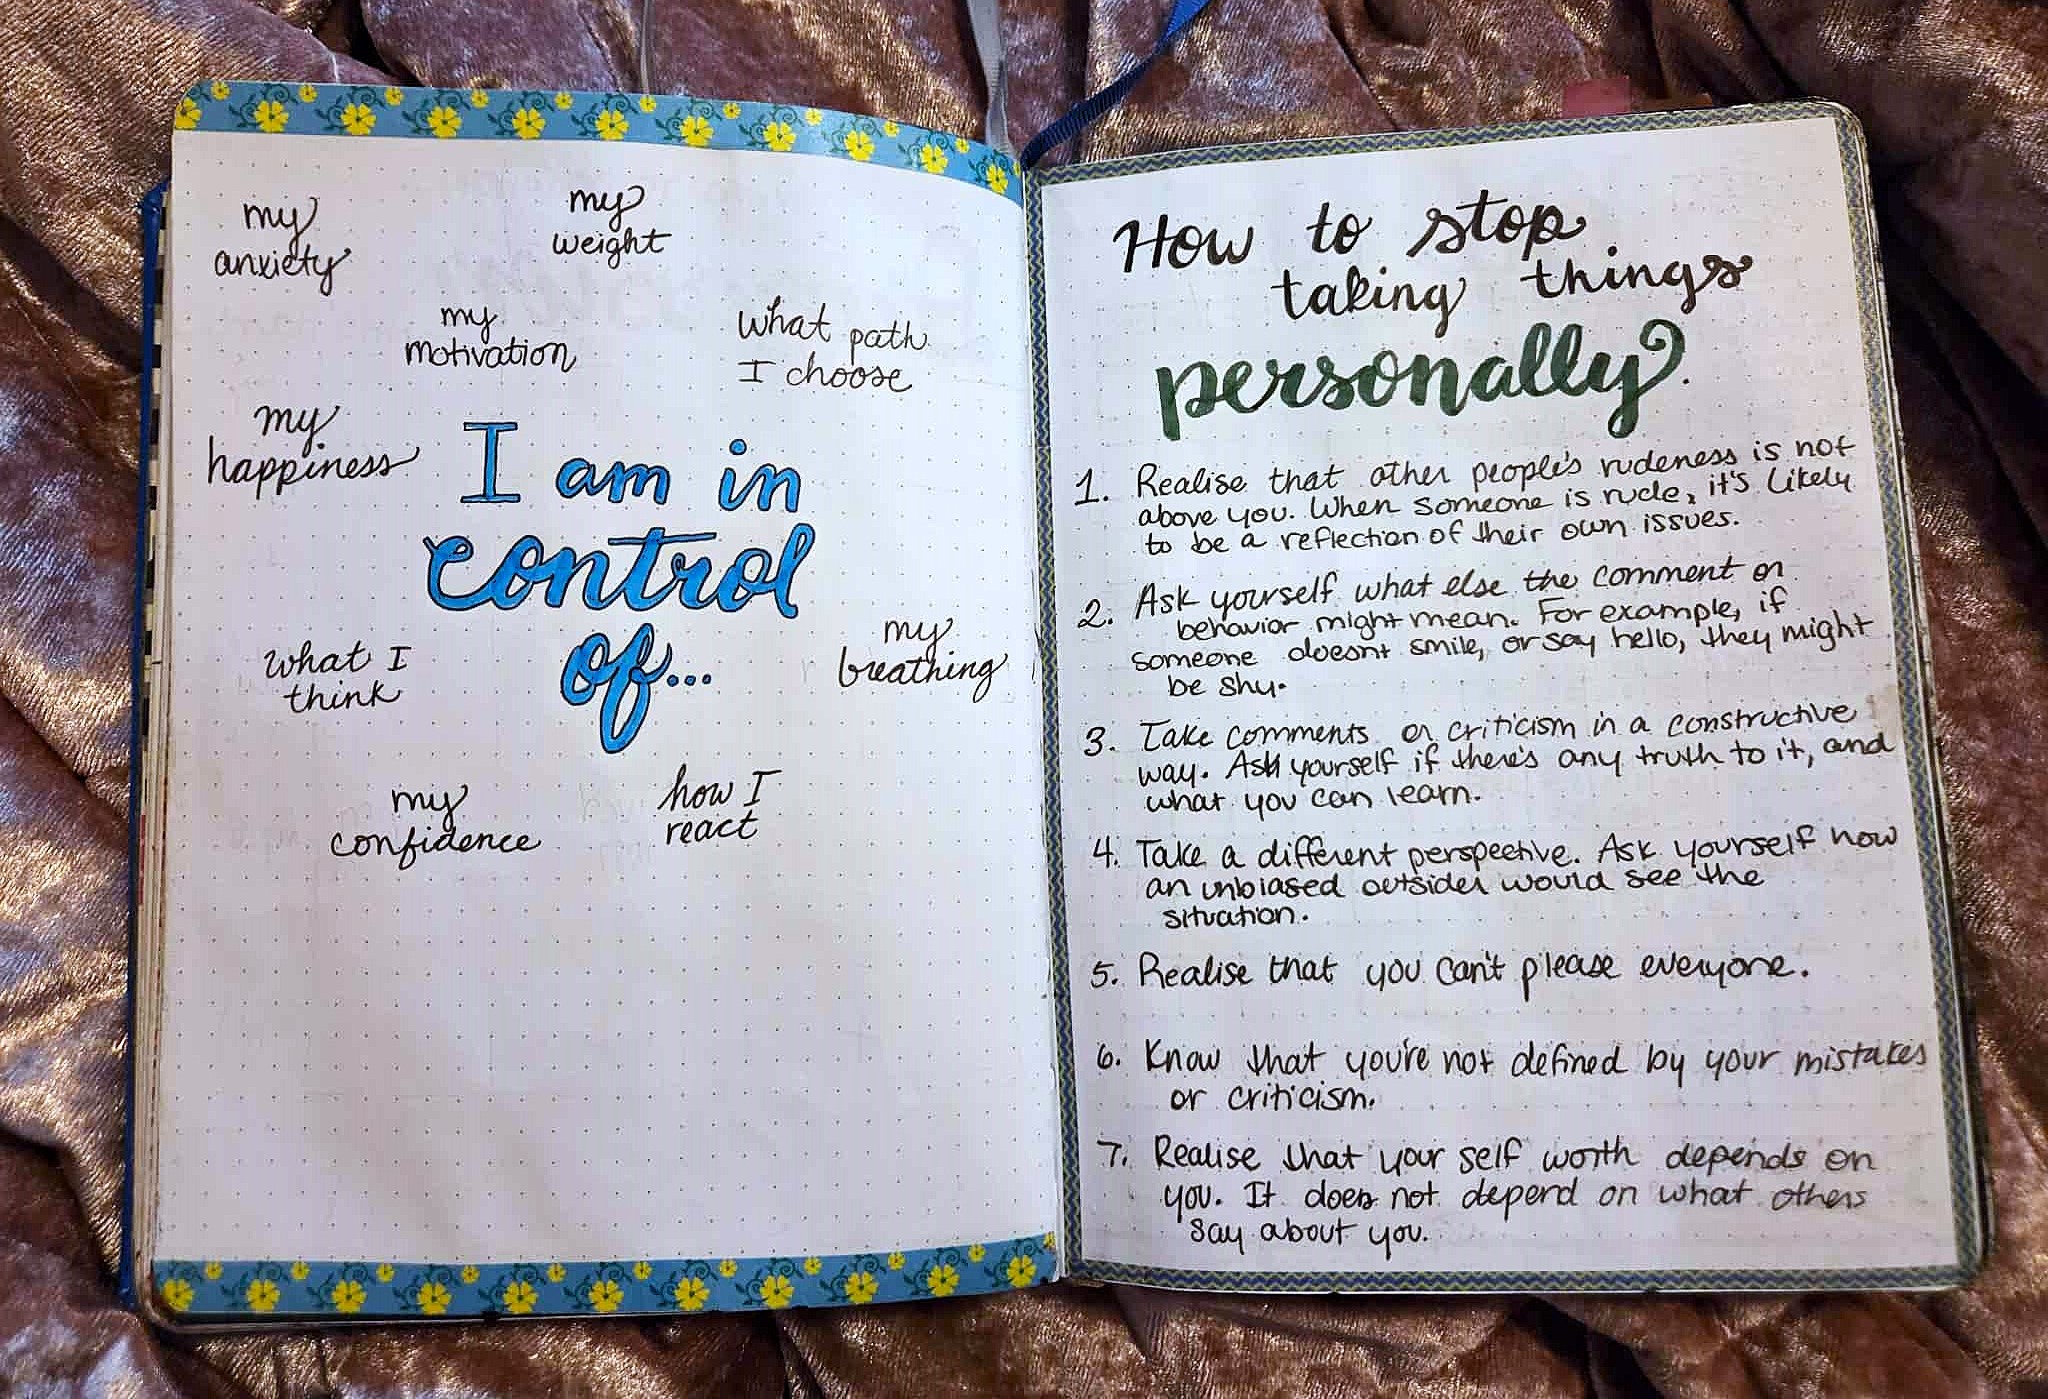 my
anxiety
my
weight
my
motivation
what path
I choose
my
happiness
I am in
control
of...
what I
think
my
breathing
my
confidence
how I
react
How to stop
taking things
personally.
1. Realise that other people's rudeness is not
above you. When someone is rude, it's likely
to be a reflection of their own issues.
2. Ask yourself what else the comment or
behavior might mean. For example, if
someone doesnt smile, or say hello, they might
be shy.
3. Take comments or criticism in a constructive
way. Ask yourself if there's any truth to it, and
what you can learn.
4. Take a different perspective. Ask yourself how
an unbiased outsider would see the
situation.
5. Realise that you can't please everyone.
6. Know that you're not defined by your mistakes
or criticism.
7. Realise that your self worth depends on
you. It does not depend on what others
say about you.